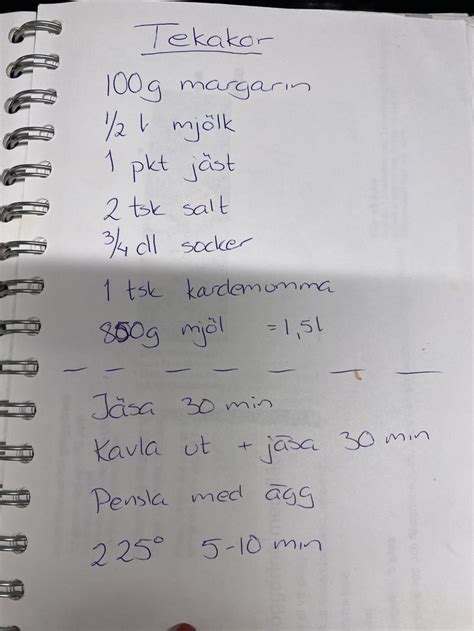 Tekakor
100g margarin
1/2 l mjölk
1 pkt jäst
2 tsk salt
3/4 dl socker
1 tsk kardemumma
850g mjöl =1,5l
Jäsa 30 min
Kavla ut + jäsa 30 min
Pensla med ägg
225° 5-10 min